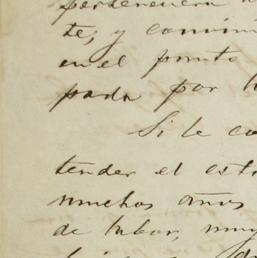 te, y
en el punto
pada por
Si le co
tender el est
muchos años
de labor, muy